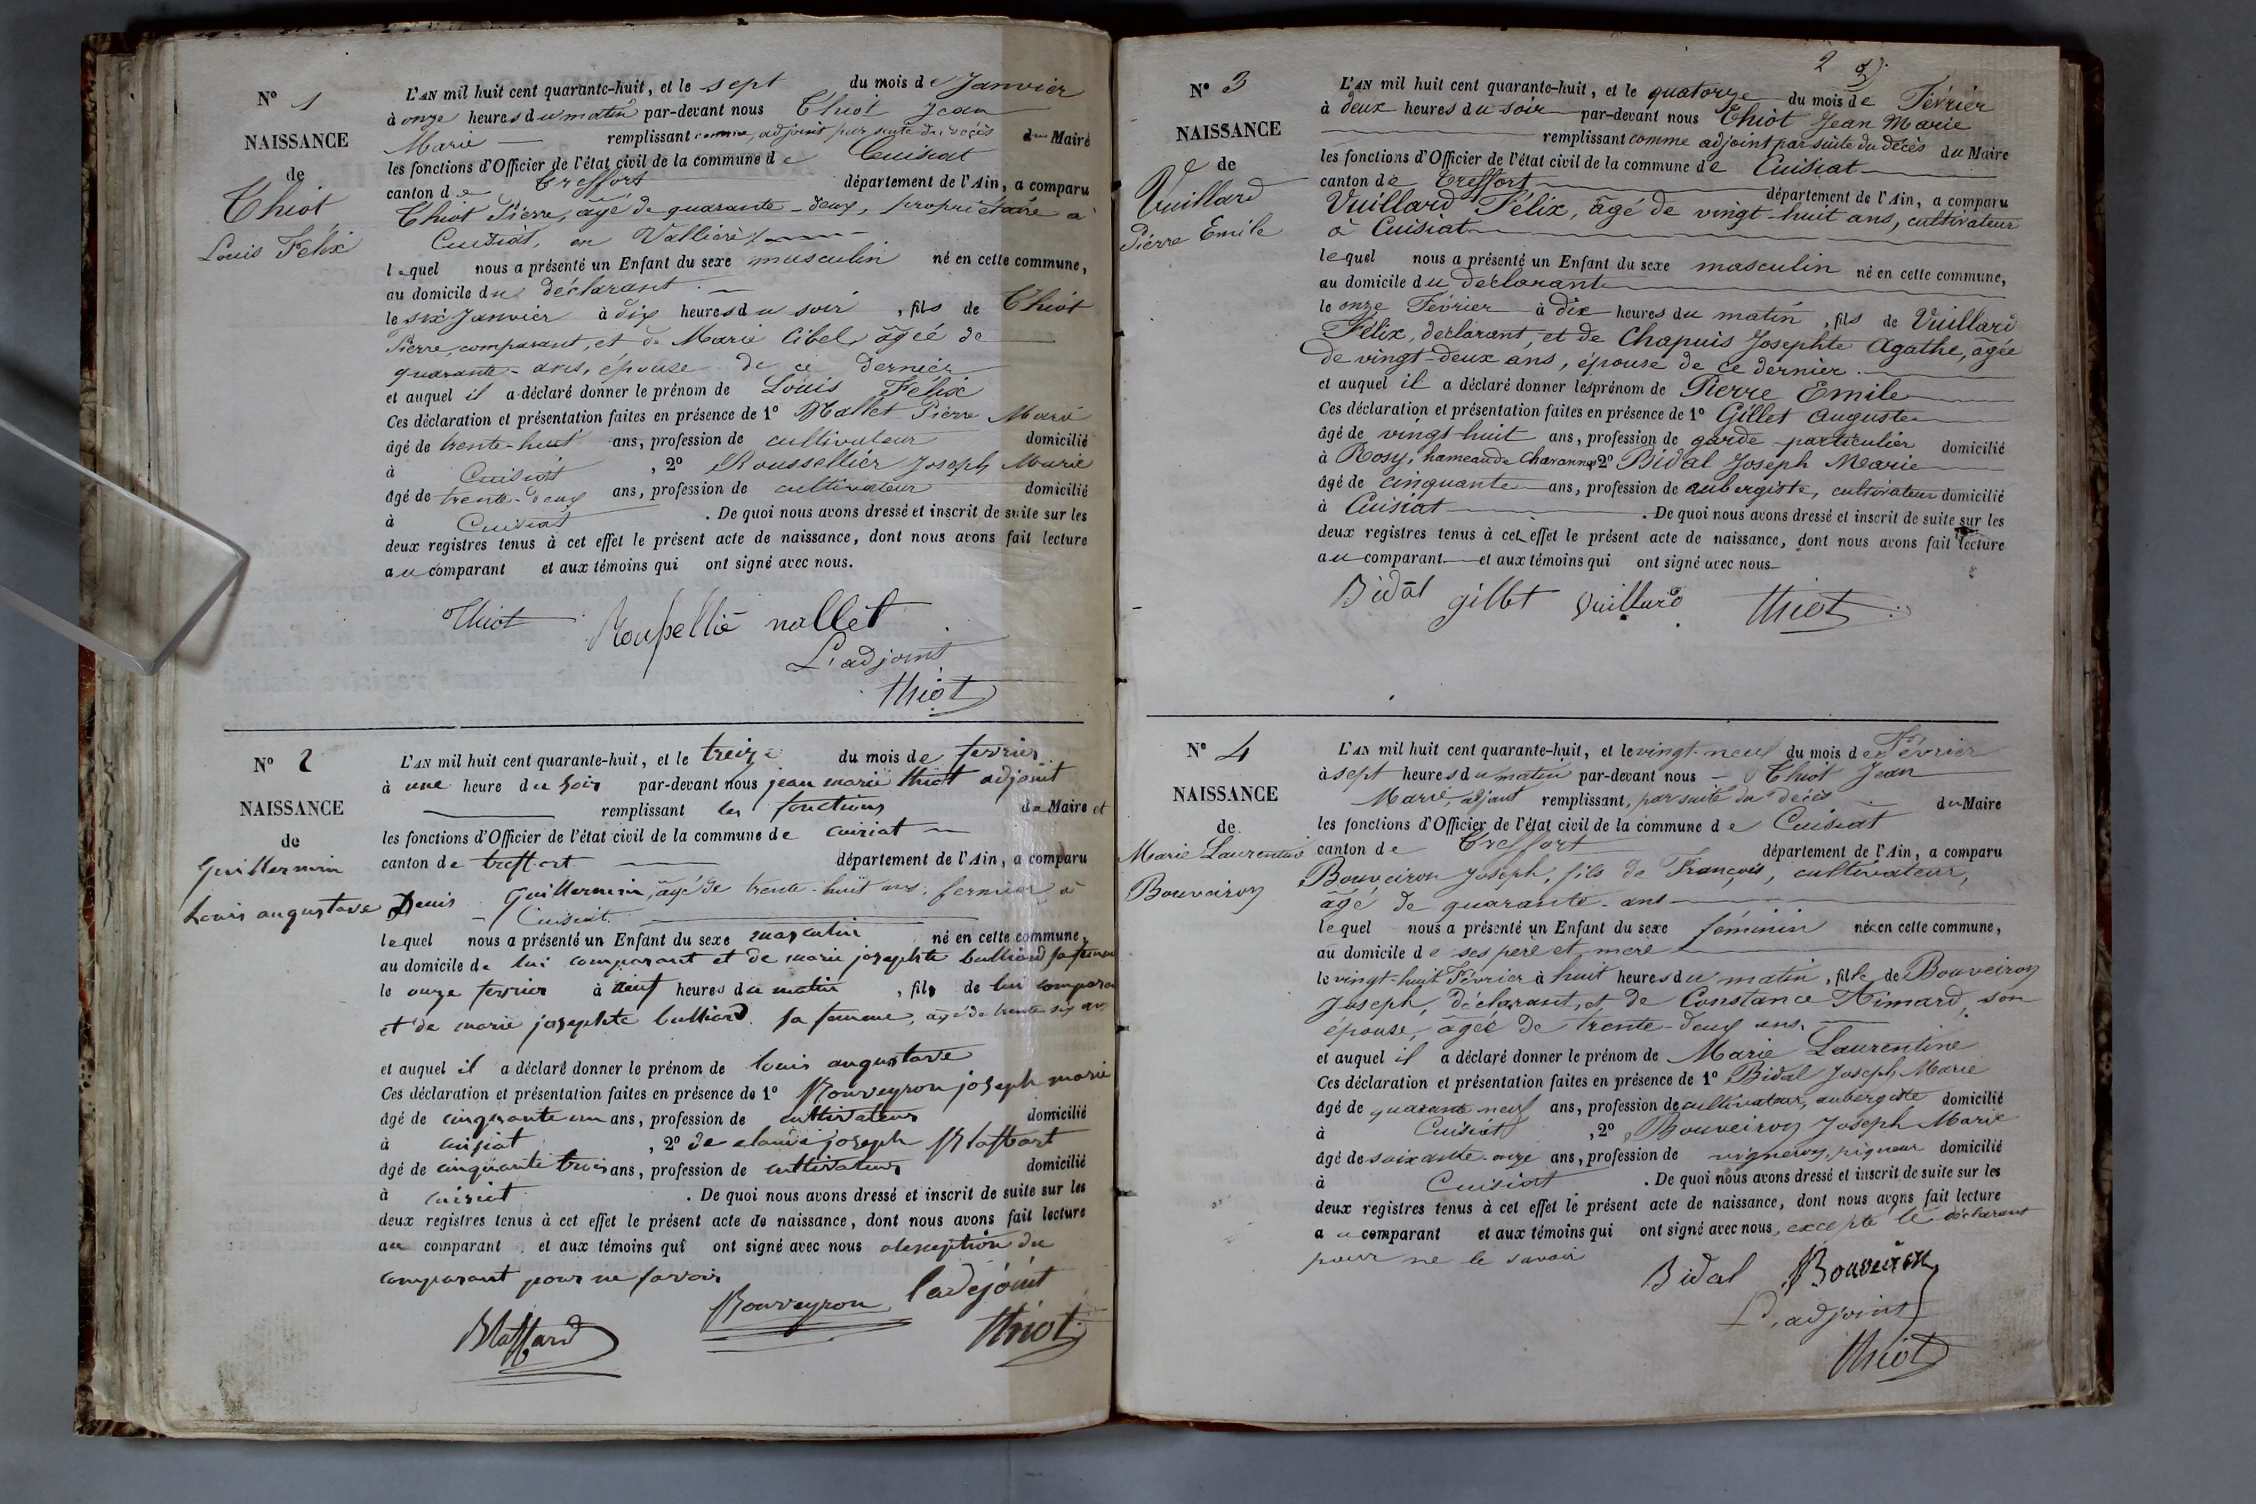 N° 1
NAISSANCE
de
Thiot
Louis Félix
L'AN mil huit cent quarante-huit, et le sept du mois de Janvier
à onze heures du matin par-devant nous Thiot Jean
Marie remplissant comme adjoint par suite du décès du Maire
les fonctions d'Officier de l'état civil de la commune de Cuisiat
canton de Treffort département de l'Ain, a comparu
Thiot Pierre, âgé de quarante-deux, propriétaire à
Cuisiat, en Vallière
lequel nous a présenté un Enfant du sexe masculin né en cette commune,
au domicile du déclarant
le six Janvier à dix heures du soir, fils de Thiot
Pierre, comparant, et de Marie Cibel, âgée de
quarante-ans, épouse de ce dernier
et auquel il a déclaré donner le prénom de Louis Félix
Ces déclaration et présentation faites en présence de 1° Nallet Pierre Marie
âgé de trente-huit ans, profession de cultivateur domicilié
à Cuisiat, 2° Roussellier Joseph Marie
âgé de trente-deux ans, profession de cultivateur domicilié
à Cuisiat. De quoi nous avons dressé et inscrit de suite sur les
deux registres tenus à cet effet le présent acte de naissance, dont nous avons fait lecture
au comparant et aux témoins qui ont signé avec nous.
Thiot nallet
L'adjoint
thiot
N° 2
NAISSANCE
de
Guillermin
Louis augustave
L'AN mil huit cent quarante-huit, et le treize du mois de fevrier
à une heure du soir par-devant nous jean marie thiot adjoint
remplissant les fonctions du Maire et
les fonctions d'Officier de l'état civil de la commune de cuisiat
canton de treffort département de l'Ain, a comparu
Denis Guillermin, âgé de trente-huit ans, fermier à
Cuisiat
lequel nous a présenté un Enfant du sexe masculin né en cette commune,
au domicile de lui comparant et de marie josephte bulliard sa femme
le onze fevrier à neuf heures du matin, fils de lui comparan
et de marie josephte bulliard sa femme, âgé de trente six ans
et auquel il a déclaré donner le prénom de louis augustave
Ces déclaration et présentation faites en présence de 1° Bouveyron joseph marie
âgé de cinquante un ans, profession de cultivateur domicilié
à cuisiat, 2° de claude joseph Blaffart
âgé de cinquante trois ans, profession de cultivateur domicilié
à cuisiat. De quoi nous avons dressé et inscrit de suite sur les
deux registres tenus à cet effet le présent acte de naissance, dont nous avons fait lecture
au comparant et aux témoins qui ont signé avec nous alexeption du
comparant pour ne savoir
Blaffard Bouveyron ladejoint
thiot
2
N° 3
NAISSANCE
de
Vuillard
Pierre Emile
L'AN mil huit cent quarante-huit, et le quatorze du mois de Février
à deux heures du soir par-devant nous Thiot Jean Marie
remplissant comme adjoint par suite du décès du Maire
les fonctions d'Officier de l'état civil de la commune de Cuisiat
canton de Treffort département de l'Ain, a comparu
Vuillard Félix, âgé de vingt-huit ans, cultivateur
à Cuisiat
lequel nous a présenté un Enfant du sexe masculin né en cette commune,
au domicile du déclarant
le onze Février à dix heures du matin, fils de Vuillard
Félix, déclarant, et de Chapuis Josephte Agathe, âgée
de vingt-deux ans, épouse de ce dernier
et auquel il a déclaré donner les prénom de Pierre Emile
Ces déclaration et présentation faites en présence de 1° Gillet Auguste
âgé de vingt-huit ans, profession de garde particulier domicilié
à Rosy, hameau de Chavannes 2° Bidal Joseph Marie
âgé de cinquante ans, profession de aubergiste, cultivateur domicilié
à Cuisiat. De quoi nous avons dressé et inscrit de suite sur les
deux registres tenus à cet effet le présent acte de naissance, dont nous avons fait lecture
au comparant et aux témoins qui ont signé avec nous
Bidal gillet Vuillard thiot
N° 4
NAISSANCE
de
Marie Laurentine
Bouveiron
L'AN mil huit cent quarante-huit, et le vingt-neuf du mois de Février
à sept heures du matin par-devant nous Thiot Jean
Marie, adjoint remplissant, par suite du décès du Maire
les fonctions d'Officier de l'état civil de la commune de Cuisiat
canton de Treffort département de l'Ain, a comparu
Bouveiron Joseph, fils de François, cultivateur,
âgé de quarante-ans
lequel nous a présenté un Enfant du sexe féminin née en cette commune,
au domicile de ses père et mère
le vingt-huit Février à huit heures du matin, fille de Bouveiron
Joseph, déclarant, et de Constance Aimard, son
épouse, âgée de trente-deux ans.
et auquel il a déclaré donner le prénom de Marie Laurentine
Ces déclaration et présentation faites en présence de 1° Bidal Joseph Marie
âgé de quarante neuf ans, profession de cultivateur, aubergiste domicilié
à Cuisiat, 2° Bouveiron Joseph Marie
âgé de soixante-onze ans, profession de vigneron, domicilié
à Cuisiat. De quoi nous avons dressé et inscrit de suite sur les
deux registres tenus à cet effet le présent acte de naissance, dont nous avons fait lecture
au comparant et aux témoins qui ont signé avec nous, excepté le déclarant
pour ne le savoir
Bidal Bouveiron
L'adjoint
thiot